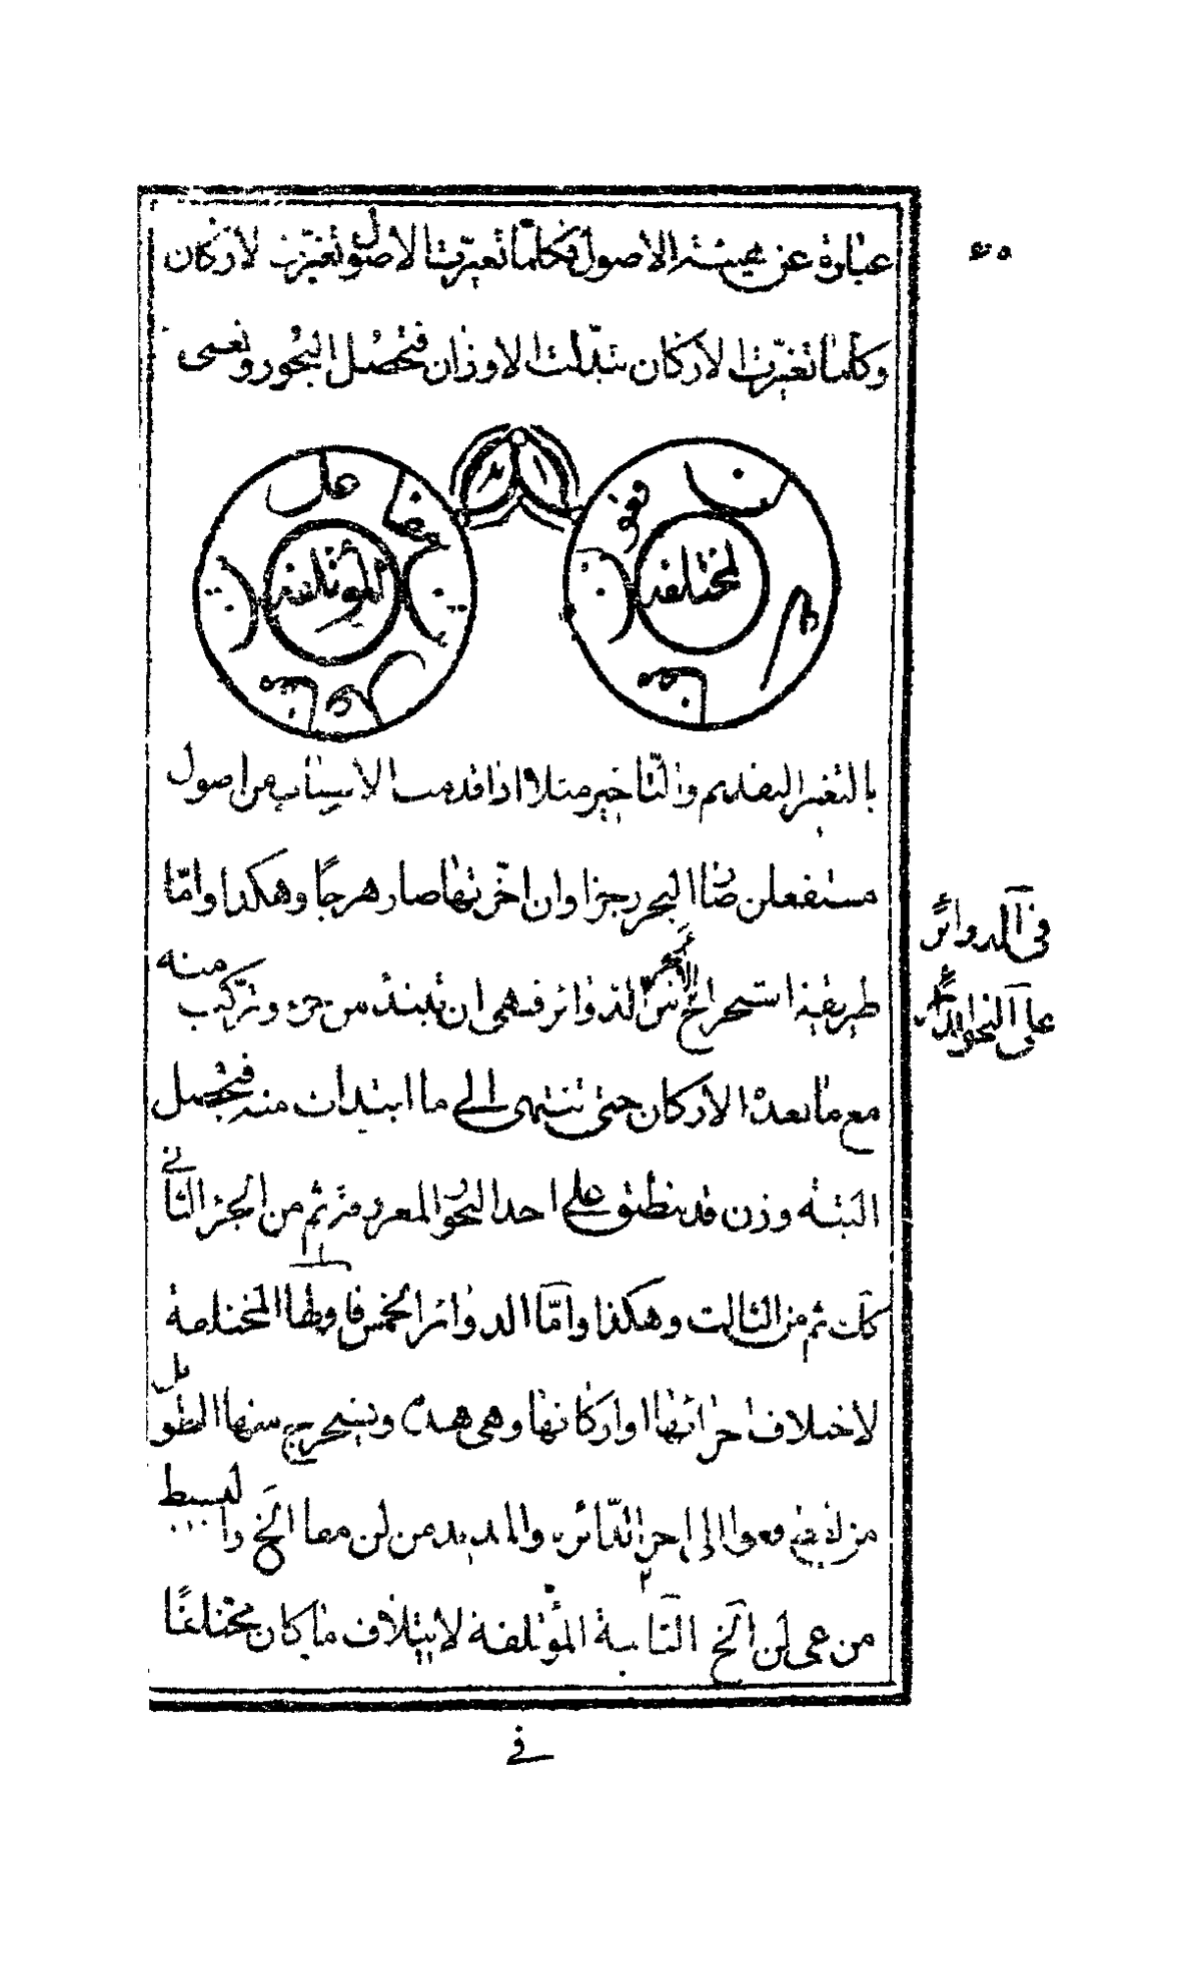 عبارة عن هيئة الاصول فكلما تغيرت الاصول تغيرت الاركان
وكلما تغيرت الاركان تبدلت الاوزان فتحصل البحور ونعنى
المختلفه
فعو
لن
المؤتلفه
مفا
علـ
تن
بالتغير التقديم والتأخير مثلا اذا قدمت الاسباب من اصول
مستفعلن صار البحر رجزا وان اخرتها صار هزجا وهكذا وامّا
طريقة استخراج الابحر من الدوائر فهى ان تبتدء من جزء وتركب منه
مع ما بعده الاركان حتى تنتهى الى ما ابتدات منه فيحصل
البتة وزن قد ينطبق على احد البحور المعروفة ثم من الجزء الثانى
كك ثم من الثالث وهكذا وامّا الدوائر الخمس فاولها المختلفة
لاختلاف اجزائها واركانها وهى هذه ويستخرج منها الطويل
من فعوا الى اخر الدّائره والمديد من لن مفا الخ والبسيط
من عى لن الخ الثانية المؤتلفة لايتلاف ماكان مختلفًا
فى
فى الدوائر
على النحو